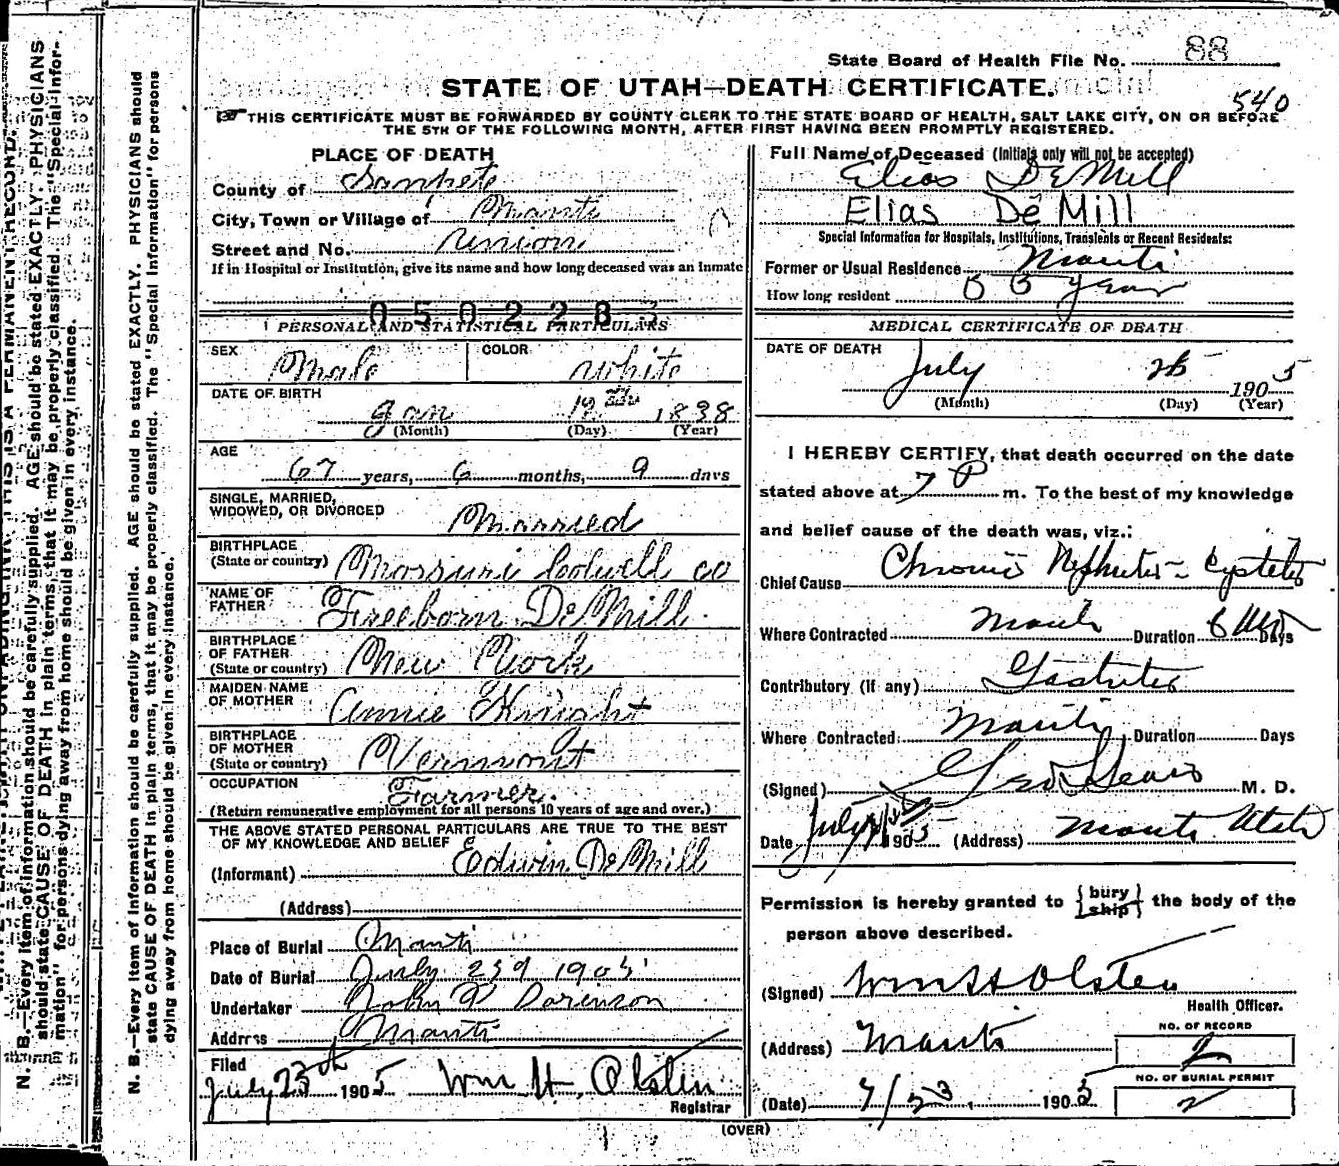 State Board of Health File No. 88
STATE OF UTAH—DEATH CERTIFICATE.
540
THIS CERTIFICATE MUST BE FORWARDED BY COUNTY CLERK TO THE STATE BOARD OF HEALTH, SALT LAKE CITY, ON OR BEFORE
THE 5TH OF THE FOLLOWING MONTH, AFTER FIRST HAVING BEEN PROMPTLY REGISTERED.
PLACE OF DEATH
County of Sanpete
City, Town or Village of Manti
Street and No. Union
If in Hospital or Institution, give its name and how long deceased was an Inmate
050228
PERSONAL AND STATISTICAL PARTICULARS
SEX Male COLOR White
DATE OF BIRTH
Jan 1838
(Month) (Day) (Year)
AGE
67 years, 6 months, 9 days
SINGLE, MARRIED,
WIDOWED, OR DIVORCED Married
BIRTHPLACE
(State or country) Missuri Colwell co
NAME OF
FATHER Freeborn DeMill
BIRTHPLACE
OF FATHER
(State or country) New York
MAIDEN NAME
OF MOTHER Annie Knight
BIRTHPLACE
OF MOTHER
(State or country) Vermont
OCCUPATION Farmer.
(Return remunerative employment for all persons 10 years of age and over.)
THE ABOVE STATED PERSONAL PARTICULARS ARE TRUE TO THE BEST
OF MY KNOWLEDGE AND BELIEF
(Informant) Edwin DeMill
(Address)
Place of Burial Manti
Date of Burial July 23d 1905
Undertaker John
Address Manti
Filed
July 23th 1905 Wm H. Olsten
Registrar
Full Name of Deceased (Initials only will not be accepted)
Elias DeMill
Elias De Mill
Special Information for Hospitals, Institutions, Transients or Recent Residents:
Former or Usual Residence Manti
How long resident 55 years
MEDICAL CERTIFICATE OF DEATH
DATE OF DEATH
July 1905
(Month) (Day) (Year)
I HEREBY CERTIFY, that death occurred on the date
stated above at 7 P m. To the best of my knowledge
and belief cause of the death was, viz.:
Chief Cause Chronic Nephritis - Cystitis
Where Contracted Manti Duration 6 Days
Contributory (if any) Gastritis
Where Contracted Manti Duration Days
(Signed) Geo M. D.
Date July 1905 (Address) Manti Utah
Permission is hereby granted to {bury/ship} the body of the
person above described.
(Signed) Wm H Olsten
Health Officer.
(Address) Manti
NO. OF RECORD
2
NO. OF BURIAL PERMIT
2
(Date) 7/23, 1905
(OVER)
N. B.—Every item of information should be carefully supplied. AGE should be stated EXACTLY. PHYSICIANS should
state CAUSE OF DEATH in plain terms, that it may be properly classified. The "Special Information" for persons
dying away from home should be given in every instance.
THIS IS A PERMANENT RECORD.
N. B.—Every item of information should be carefully supplied. AGE should be stated EXACTLY. PHYSICIANS
should state CAUSE OF DEATH in plain terms, that it may be properly classified. The "Special Infor-
mation" for persons dying away from home should be given in every instance.